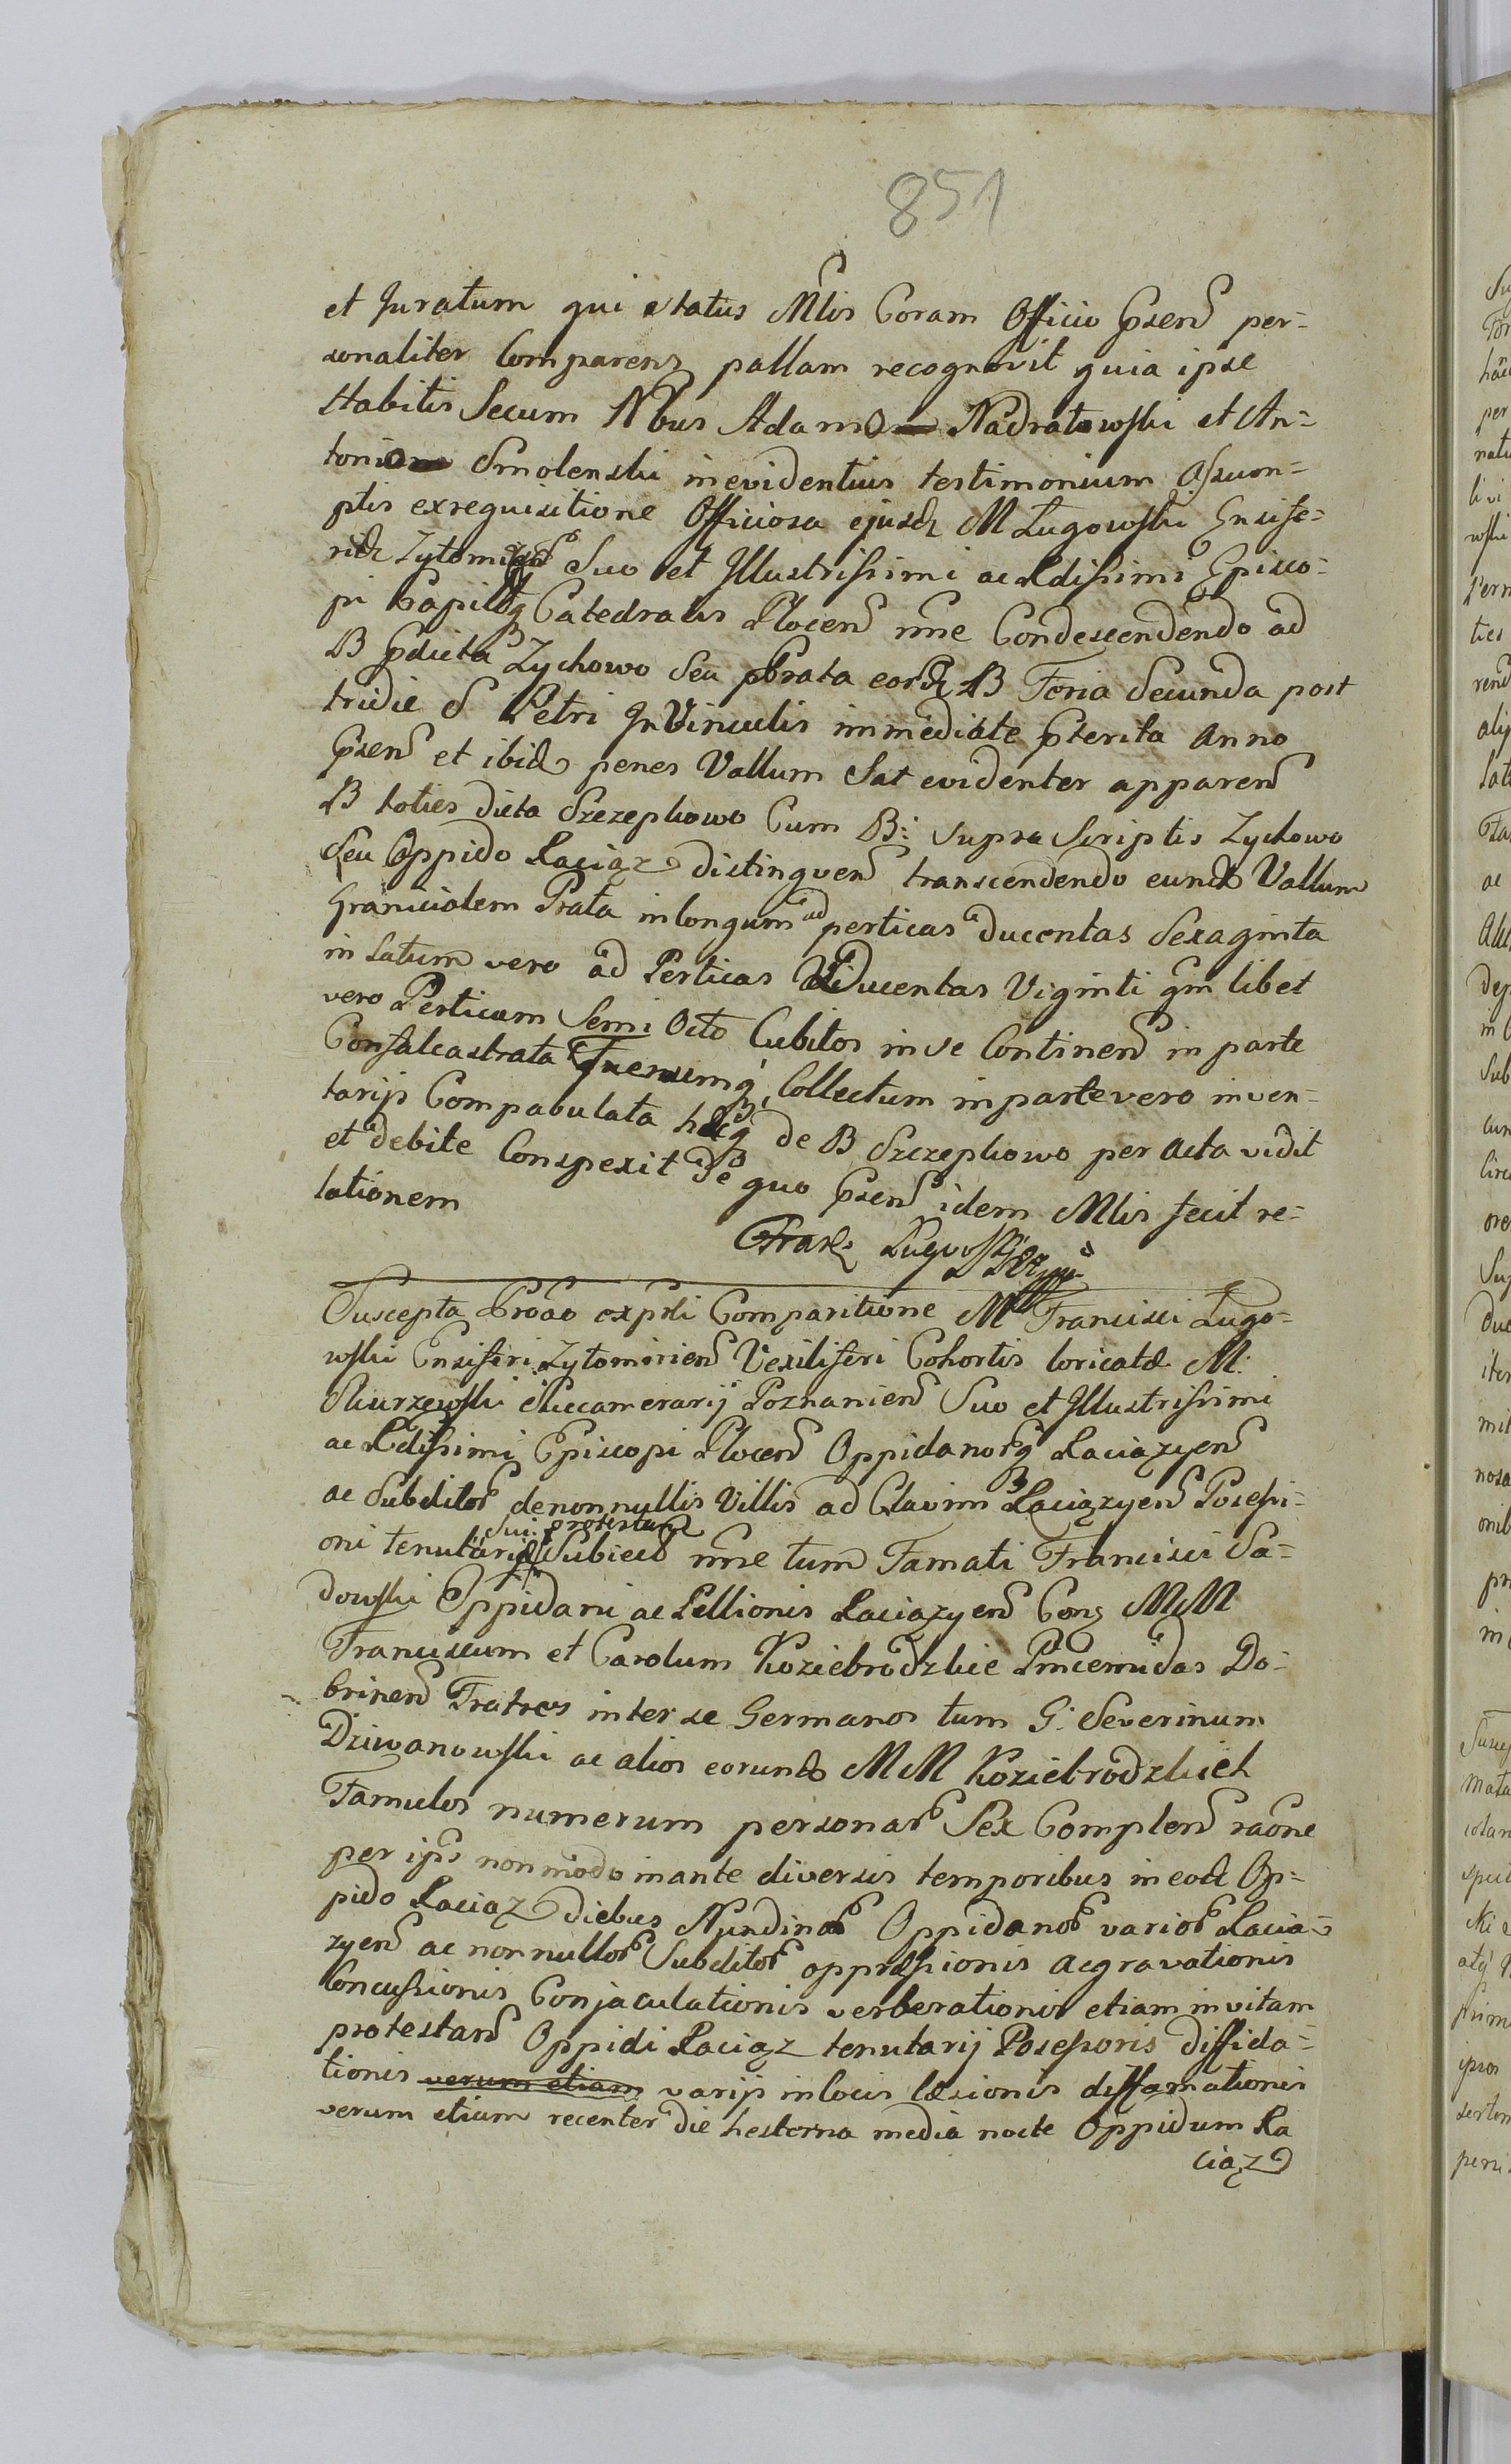 851
et Juratum qui status Mlis Coram Officio Psen per=
sonaliter Comparens pallam recognovit quia ipse
Habitis Secum Nbus Adamo Nadratowski et An=
tonio Smolenski in evidentius testimonium Assum=
ptis ex requisitione Officiosa ejusd M Lugowski Ensife=
Suo et Illustrissimi ac Rdissimi Episco=
pi Capitlq Catedralis Plocen nne Condescendendo ad
B pdicta Zychowo seu Prata eord B Feria Secunda post
tridie S Petri In Vinculis immediate pterita Anno
Psen et ibid penes Vallum Sat evidenter apparen
B toties dicta Szczepkowo Cum B: supra Scriptis Zychowo
Seu Oppido Raciąz distinguen transcendendo eund Vallum
Granicialem Prata in longum ad perticas ducentas Sexaginta
in latum vero ad Perticas Ducentas Viginti qm libet
vero Perticam Semi Octo Cubitos in se Continen in parte
Confalcastrata Fuenumq Collectum in parte vero inven=
tarijs Compabulata hecq de B Szczepkowo per acta vidit
et debite Conspexit de quo Psen idem Mlis fecit re=
lationem
Suscepta Proao expsli Comparitione M Francisci Lugo=
wski Ensiferi Zytomirien Vexiliferi Cohortis loricatæ M.
Skurzewski Succamerarij Poznanien Suo et Illustrissimi
ac Rdissimi Episcopi Plocen Oppidanorq Raciązyen
ac Subditor de nonnullis Villis ad Clavim Raciązyen Posessi=
sui protestan
oni tenutariæ Subiec nne tum Famati Francisci Sa=
dowski Oppidani ac Pellionis Raciązyen Cons MM
Franciscum et Carolum Koziebrodzkie Pincernidas Do=
brinen Fratres inter se Germanos tum G: Severinum
Dziwanowski ac alios eorund MM Koziebrodzkich
Famulos numerum personar Sex Complen raone
per ips non modo in ante diversis temporibus in eod Op=
pido Raciąz diebus Nundinar Oppidanor varior Racią=
zyen ac nonnullor Subditor oppræssionis Agravationis
Concussionis Conjaculationis verberationis etiam in vitam
protestan Oppidi Raciąz tenutarij Posessoris diffida=
tionis verum etiam varijs in locis læsionis diffamationis
verum etiam recenter die hesterna media nocte Oppidum Ra
ciąz